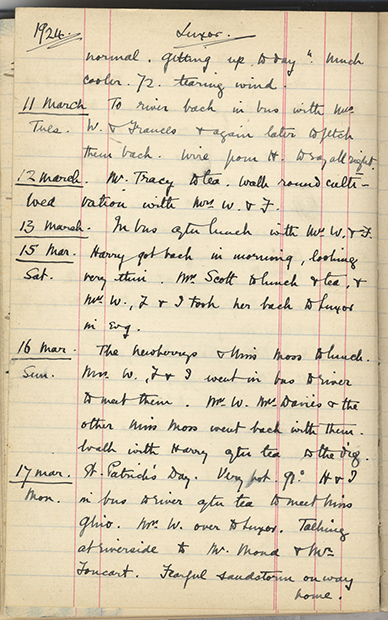 1924. Luxor.
normal. getting up to day". Much
cooler. 72. tearing wind.
11 March To river back in bus with Mrs
Tues. W. & Frances & again later to fetch
them back. Wire from H. to say all right.
12 March. Mr. Tracy to tea. Walk round culti-
Wed vation with Mrs W. & F.
13 March. In bus after lunch with Mrs W. & F.
15 Mar. Harry got back in morning, looking
Sat. very thin. Mrs Scott to lunch & tea, &
Mrs W., F & I took her back to Luxor
in evg.
16 Mar. The Newberrys & Miss Moss to lunch.
Sun. Mrs. W., F & I went in bus to river
to meet them. Mrs W. Mrs Davies & the
other Miss Moss went back with them.
Walk with Harry after tea to the dig.
17 Mar. St. Patrick's Day. Very hot 91° H & I
Mon. in bus to river after tea to meet Miss
Ghio. Mrs. W. over to Luxor. Talking
at riverside to Mr. Mond & Mr
Foucart. Fearful sandstorm on way
home.